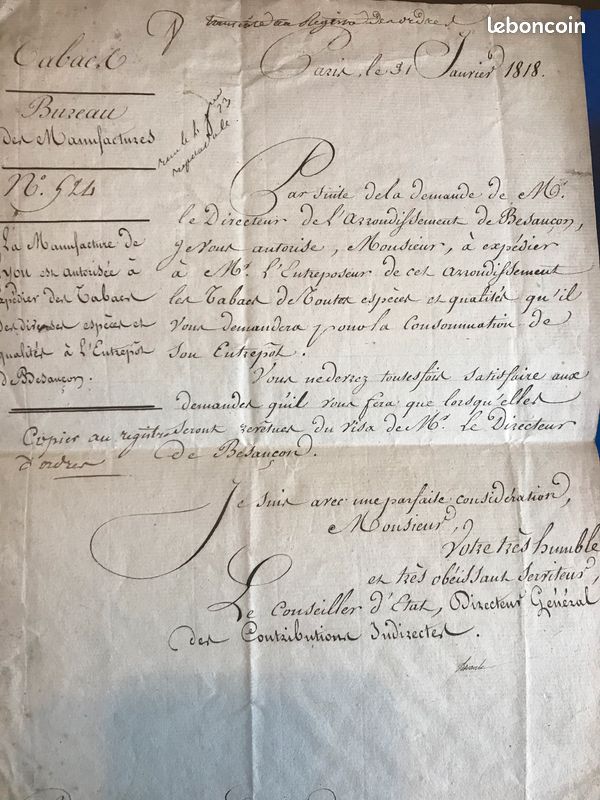 leboncoin
transcrire au Registre des ordres
Paris, le 31 Janvier 1818.
Tabacs
Bureau
des Manufactures
N.º 524
La Manufacture de
Lyon est autorisée à
expédier des Tabacs
des diverses espèces et
qualités à l'Entrepôt
de Besançon.
Copier au registre
d'ordres
Par suite de la demande de Mr.
le Directeur de l'Arrondissement de Besançon,
je vous autorise, Monsieur, à expédier
à Mr. l'Entreposeur de cet arrondissement
les Tabacs de toutes espèces et qualités qu'il
vous demandera pour la Consommation de
son Entrepôt.
Vous ne devrez toutesfois satisfaire aux
demandes qu'il vous fera que lorsqu'elles
seront revêtues du visa de Mr. le Directeur
de Besançon.
Je suis avec une parfaite considération,
Monsieur,
Votre très humble
et très obéissant serviteur,
Le Conseiller d'Etat, Directeur Général
des Contributions Indirectes.